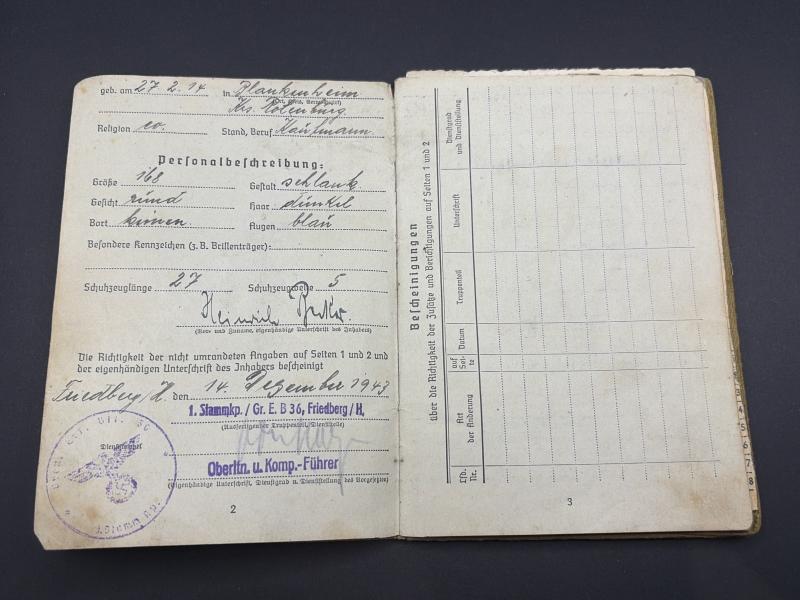 geb. am 27. 2. 14 in Blankenheim
(Ort, Kreis, Verw.-Bezirk)
Krs. Rotenburg
Religion ev. Stand, Beruf Kaufmann
Personalbeschreibung:
Größe 168 Gestalt schlank
Gesicht rund Haar dunkel
Bart keinen Augen blau
Besondere Kennzeichen (z.B. Brillenträger):
Schuhzeuglänge 27 Schuhzeugweite 5
Heinrich
(Vor- und Zuname, eigenhändige Unterschrift des Inhabers)
Die Richtigkeit der nicht umrandeten Angaben auf Seiten 1 und 2 und
der eigenhändigen Unterschrift des Inhabers bescheinigt
Friedberg/H. den 14. Dezember 1943
1. Stammkp. / Gr. E. B 36, Friedberg / H.
(Ausfertigender Truppenteil, Dienststelle)
Dienststempel
Oberltn. u. Komp.-Führer
(Eigenhändige Unterschrift, Dienstgrad u. Dienststellung des Vorgesetzten)
2
Bescheinigungen
über die Richtigkeit der Zusätze und Berichtigungen auf Seiten 1 und 2
Lfd. Nr.
Art der Änderung
auf Seite
Datum
Truppenteil
Unterschrift
Dienstgrad und Dienststellung
3